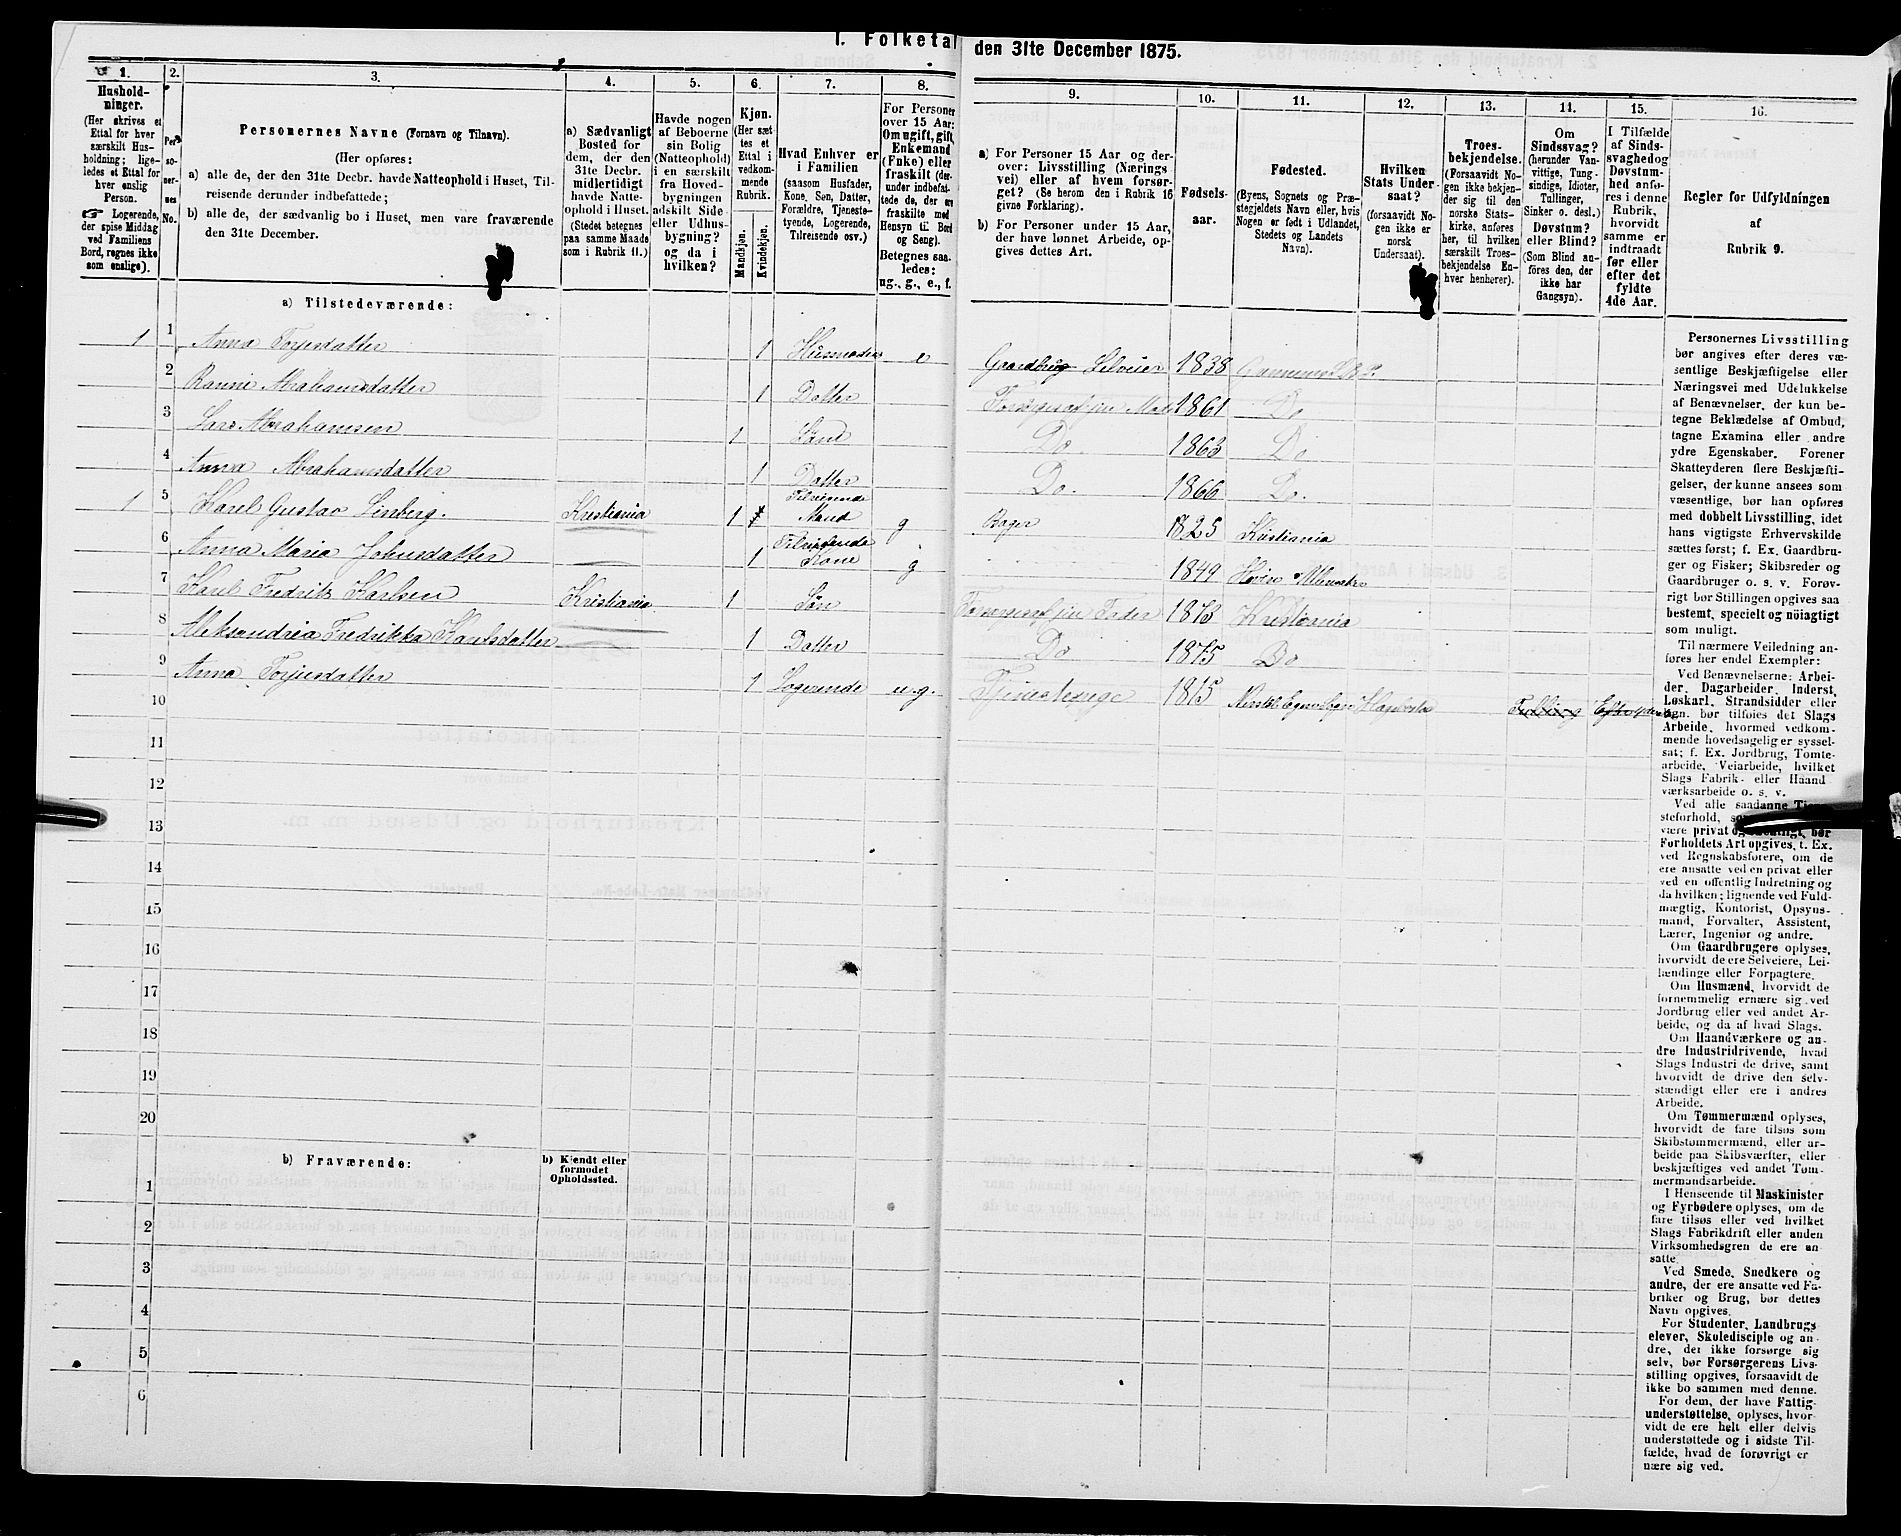 I. Folketal
den 31te December 1875.
1. 2. 3. 4. 5. 6. 7. 8. 9. 10. 11. 12. 13. 14. 15. 16.
Hushold-
ninger.
(Her skrives et
Ettal for hver
særskilt Hus-
holdning; lige-
ledes et Ettal for
hver enslig
Person.
Logerende,
der spise Middag
ved Familiens
Bord, regnes ikke
som enslige).
Per-
so-
ner-
nes
No.
Personernes Navne (Fornavn og Tilnavn).
(Her opføres:
a) alle de, der den 31te Decbr. havde Natteophold i Huset, Til-
reisende derunder indbefattede;
b) alle de, der sædvanlig bo i Huset, men vare fraværende
den 31te December.
a) Sædvanligt
Bosted for
dem, der den
31te Decbr.
midlertidigt
havde Natte-
ophold i Huset.
(Stedet betegnes
paa samme Maade
som i Rubrik 11.)
Havde nogen
af Beboerne
sin Bolig
(Natteophold)
i en særskilt
fra Hoved-
bygningen
adskilt Side-
eller Udhus-
bygning?
og da i
hvilken?
Kjøn.
(Her sæt-
tes et
Ettal i
vedkom-
mende
Rubrik.
Mandkjøn.
Kvindekjøn.
Hvad Enhver er
i Familien
(saasom Husfader,
Kone, Søn, Datter,
Forældre, Tjeneste-
tyende, Logerende,
Tilreisende osv.)
For Personer
over 15 Aar:
Om ugift, gift,
Enkemand
(Enke) eller
fraskilt (der-
under indbefat-
tede de, der er
fraskilte med
Hensyn til Bord
og Seng).
Betegnes saa-
ledes:
ug., g., e., f.
a) For Personer 15 Aar og der-
over: Livsstilling (Nærings-
vei) eller af hvem forsør-
get? (Se herom den i Rubrik 16
givne Forklaring).
b) For Personer under 15 Aar,
der have lønnet Arbeide, op-
gives dettes Art.
Fødsels-
aar.
Fødested.
(Byens, Sognets og Præ-
stegjeldets Navn eller, hvis
Nogen er født i Udlandet,
Stedets og Landets
Navn).
Hvilken
Stats Under-
saat?
(forsaavidt No-
gen ikke er
norsk
Undersaat).
Troes-
bekjendelse.
(Forsaavidt No-
gen ikke bekjen-
der sig til den
norske Stats-
kirke, anføres
her, til hvilken
særskilt Troes-
bekjendelse En-
hver henhører).
Om
Sindssvag?
(herunder Van-
vittige, Tung-
sindige, Idioter,
Tullinger,
Sinker o. desl.)
Døvstum?
eller Blind?
(Som Blind an-
føres den, der
ikke har
Gangsyn).
I Tilfælde
af Sinds-
svaghed og
Døvstum-
hed anfø-
res i denne
Rubrik,
hvorvidt
samme er
indtraadt
før eller
efter det
fyldte
4de Aar.
Regler for Udfyldningen
af
Rubrik 9.
a) Tilstedeværende:
1 1 Anna Torjesdatter 1 Husmoder e Gaardbrug Selveier 1838
2 Abrahamsdatter 1 Datter 1861 Do
3 Lars Abrahamsen 1 Søn Do. 1863 Do
4 Anna Abrahamsdatter 1 Datter Do. 1866 Do.
1 5 Karel Gustav Linberg. Kristiania 1 Tilreisende Mand g Bager 1825 Kristiania
6 Anna Maria Johnsdatter 1 Tilreisende Kone g 1849
7 Karel Fredrik Karlsen Kristiania 1 Søn Forsørges af sin Fader 1873 Kristiania
8 Aleksandria Fredrikka Karlsdatter 1 Datter Do 1875 Do
9 Anna Torjesdatter 1 Logerende u.g. Tjenestepige 1815
10
11
12
13
14
15
16
17
18
19
20
b) Fraværende:
b) Kjendt eller
formodet
Opholdssted.
1
2
3
4
5
6
Personernes Livsstilling
bør angives efter deres væ-
sentlige Beskjæftigelse eller
Næringsvei med Udelukkelse
af Benævnelser, der kun be-
tegne Beklædelse af Ombud,
tagne Examina eller andre
ydre Egenskaber. Forener
Skatteyderen flere Beskjæfti-
gelser, der kunne ansees som
væsentlige, bør han opføres
med dobbelt Livsstilling, idet
hans vigtigste Erhvervskilde
sættes først; f. Ex. Gaardbru-
ger og Fisker; Skibsreder og
Gaardbruger o. s. v. Forøv-
rigt bør Stillingen opgives saa
bestemt, specielt og nöiagtigt
som muligt.
Til nærmere Veiledning an-
føres her endel Exempler:
Ved Benævnelserne: Arbei-
der, Dagarbeider, Inderst,
Løskarl, Strandsidder eller
lign. bør tilføies det Slags
Arbeide, hvormed vedkom-
mende hovedsagelig er syssel-
sat; f. Ex. Jordbrug, Tomte-
arbeide, Veiarbeide, hvilket
Slags Fabrik- eller Haand-
værksarbeide o. s. v.
Ved alle saadanne Tjene-
steforhold,
være privat og offentligt, bør
Forholdets Art opgives, t. Ex.
ved Regnskabsførere, om de
ere ansatte ved en privat eller
ved en offentlig Indretning og
da hvilken; lignende ved Fuld-
mægtig, Kontorist, Opsyns-
mand, Forvalter, Assistent,
Lærer, Ingeniør og andre.
Om Gaardbrugere oplyses,
hvorvidt de ere Selveiere, Lei-
lændinge eller Forpagtere.
Om Husmænd, hvorvidt de
fornemmelig ernære sig ved
Jordbrug eller ved andet Ar-
beide, og da af hvad Slags.
Om Haandværkere og an-
dre Industridrivende, hvad
Slags Industri de drive, samt
hvorvidt de drive den selv-
stændigt eller ere i andres
Arbeide.
Om Tømmermænd oplyses,
hvorvidt de fare tilsøs som
Skibstømmermænd, eller ar-
beide paa Skibsværfter, eller
beskjæftiges ved andet Tøm-
mermandsarbeide.
I Henseende til Maskinister
og Fyrbødere oplyses, om de
fare tilsøs eller ved hvilket
Slags Fabrikdrift eller anden
Virksomhedsgren de ere an-
satte.
Ved Smede, Snedkere og
andre, der ere ansatte ved Fa-
briker og Brug, bør dettes
Navn opgives.
For Studenter, Landbrugs-
elever, Skoledisciple og an-
dre, der ikke forsørge sig
selv, bør Forsørgerens Livs-
stilling opgives, forsaavidt de
ikke bo sammen med denne.
For dem, der have Fattig-
understøttelse, oplyses, hvor-
vidt de ere helt eller delvis
understøttede og i sidste Til-
fælde, hvad de forøvrigt er-
nære sig ved.